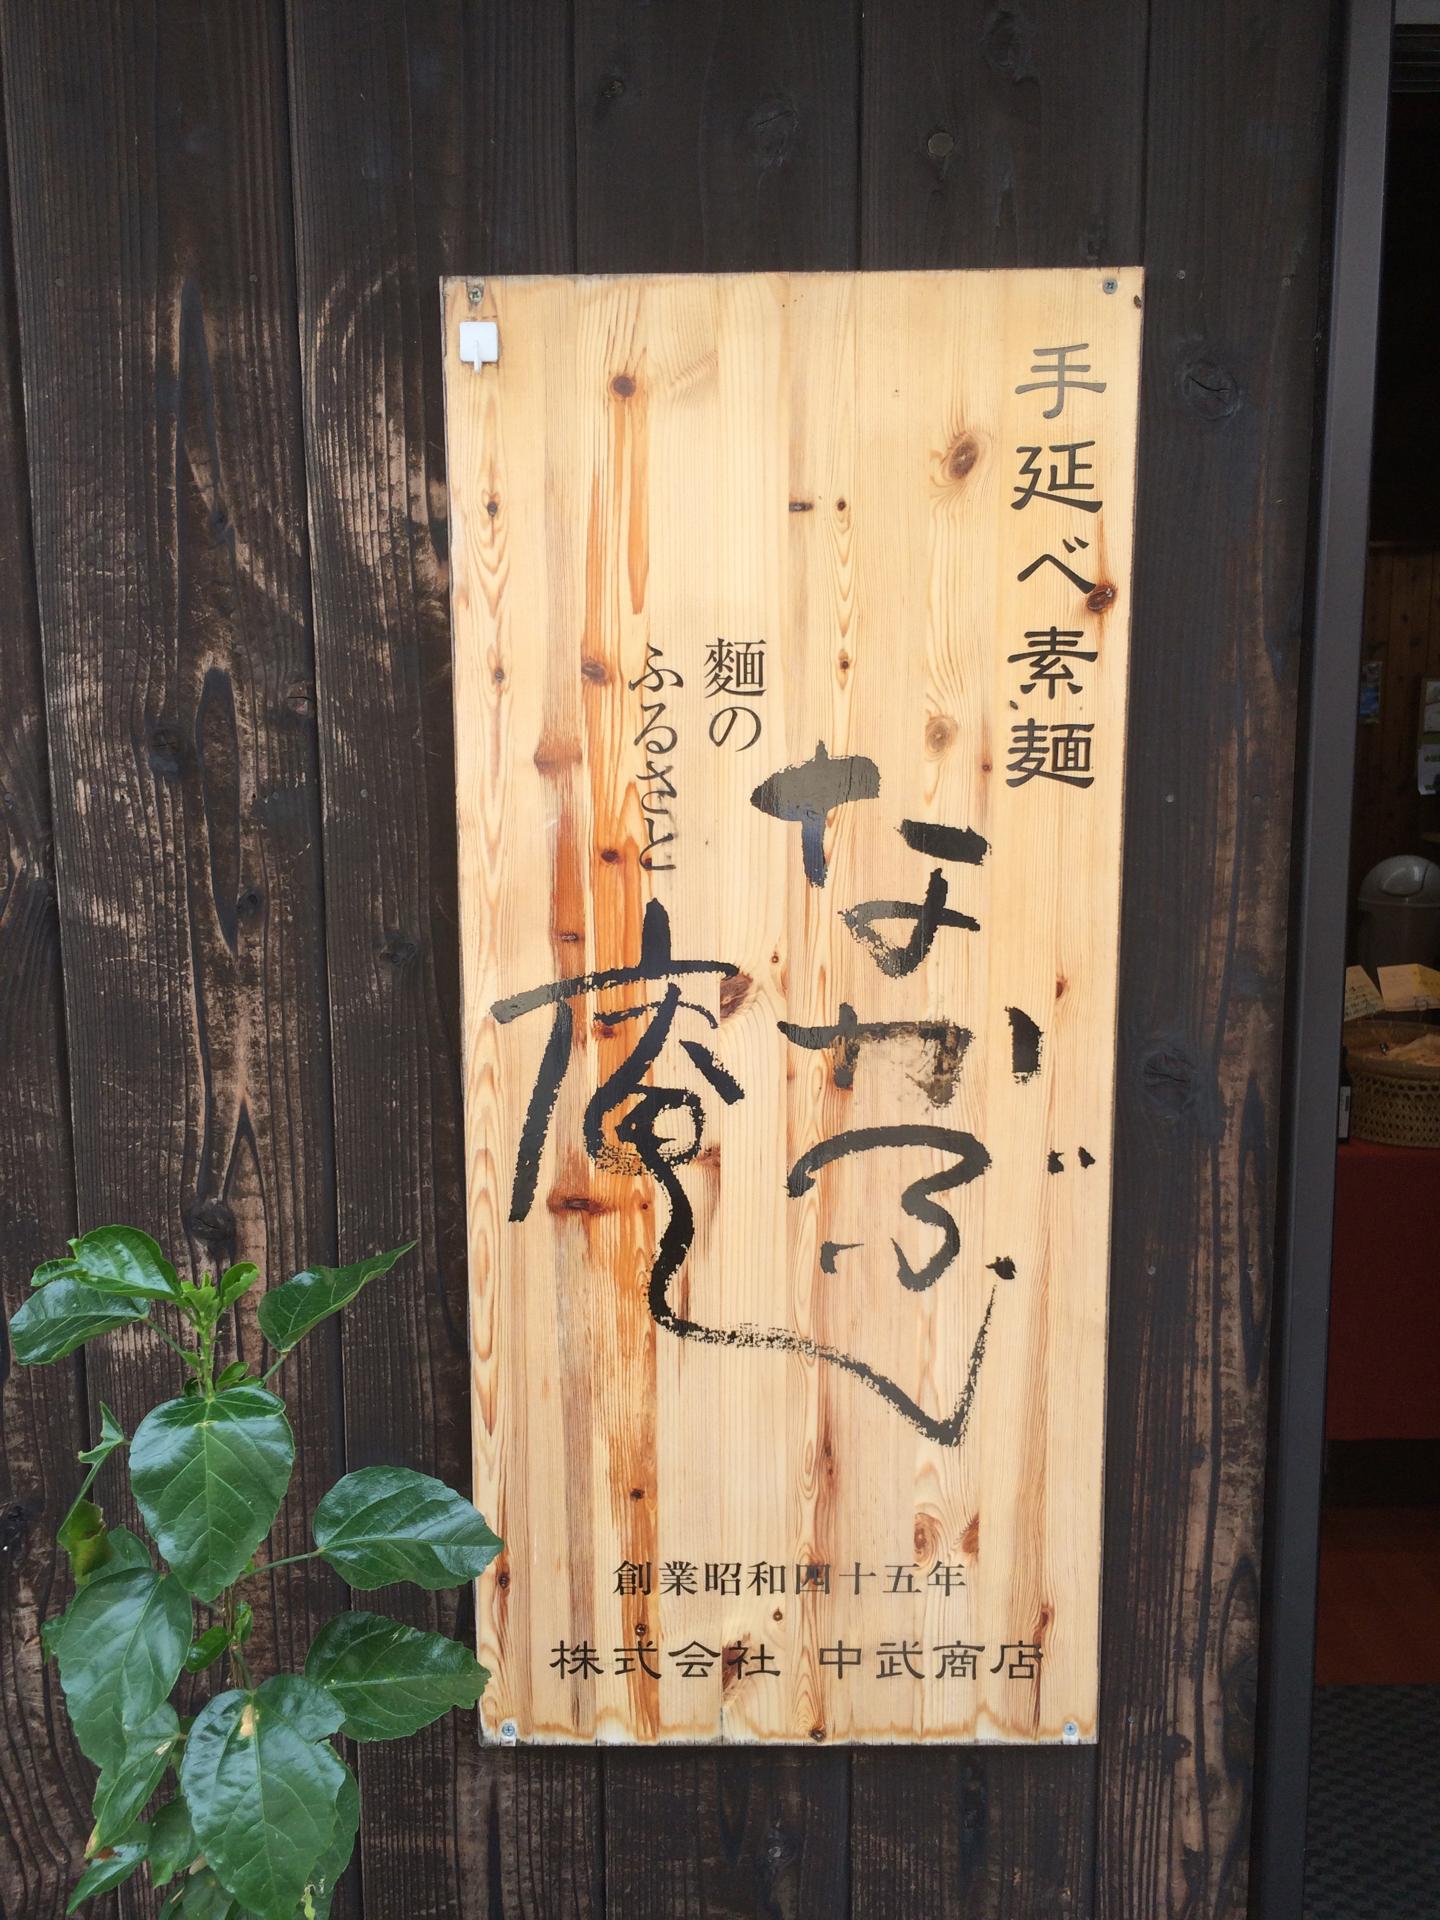 手延べ素麺
なかぶ
麺の
ふるさと
庵
創業昭和四十五年
株式会社 中武商店